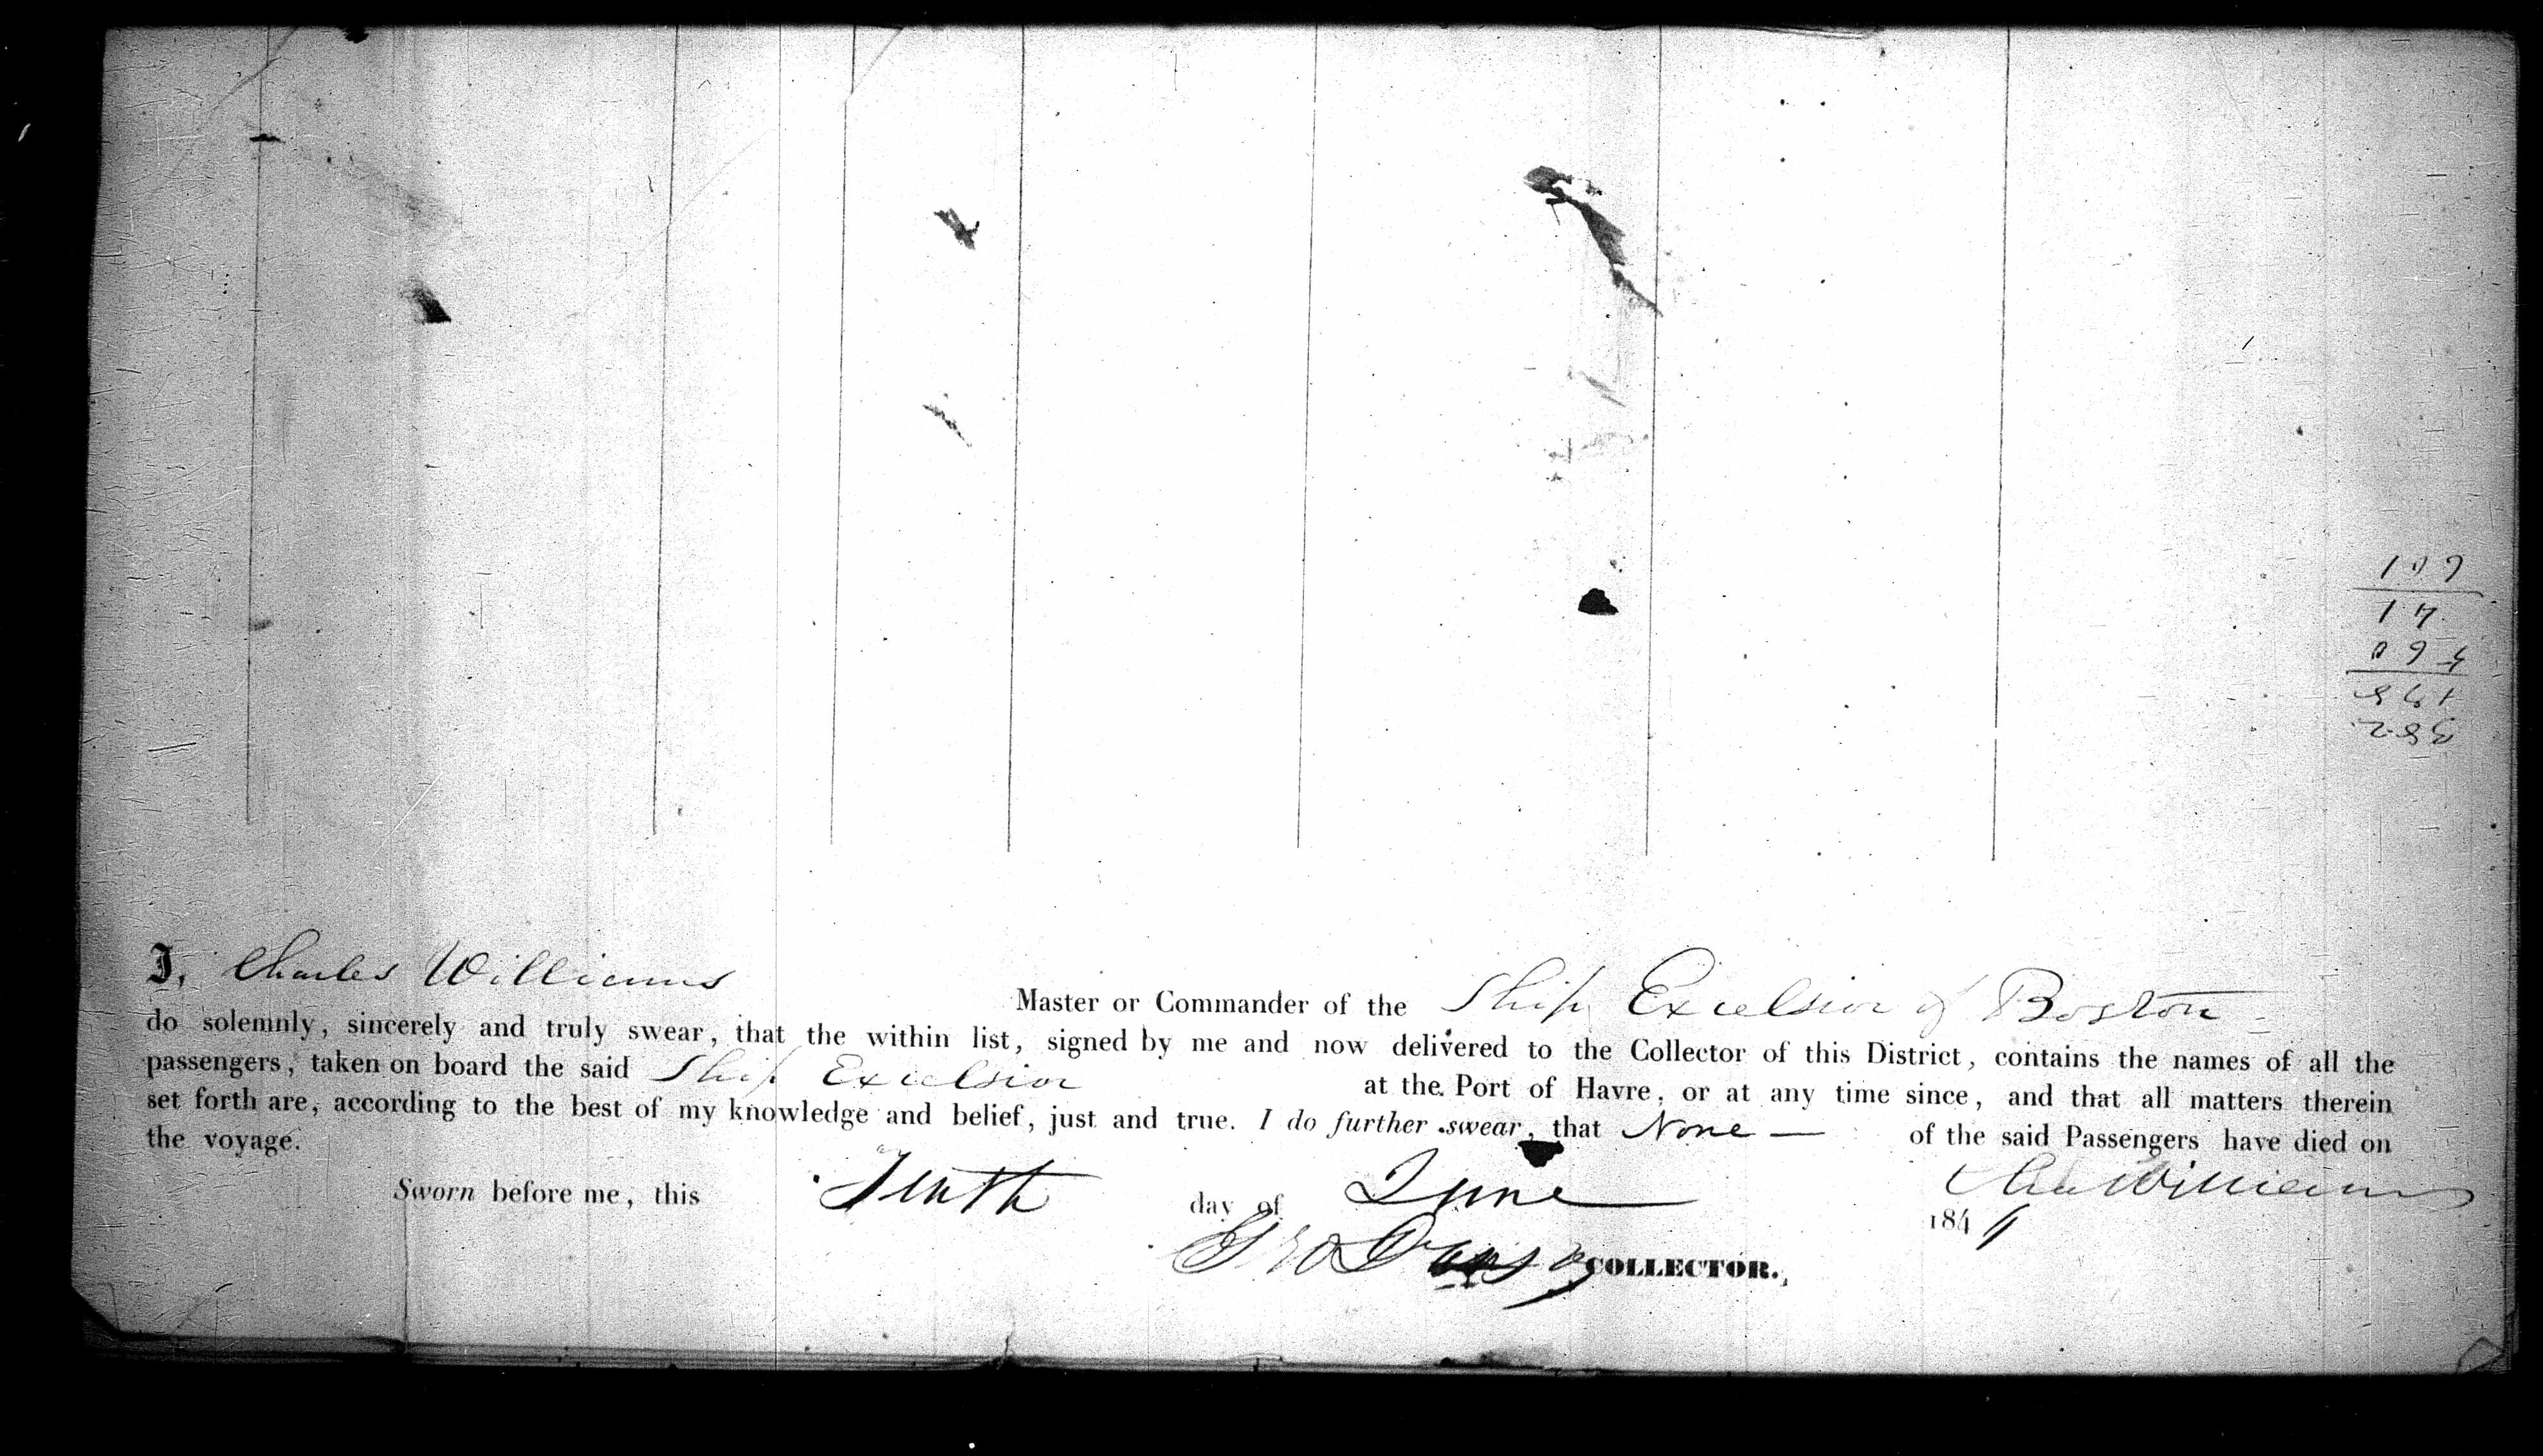 I, Charles Williams Master or Commander of the Ship Excelsior of Boston
do solemnly, sincerely and truly swear, that the within list, signed by me and now delivered to the Collector of this District, contains the names of all the
passengers, taken on board the said Ship Excelsior at the Port of Havre, or at any time since, and that all matters therein
set forth are, according to the best of my knowledge and belief, just and true. I do further swear, that None — of the said Passengers have died on
the voyage.
Chas Williams
Sworn before me, this Tenth day of June 184
Geo COLLECTOR.
382